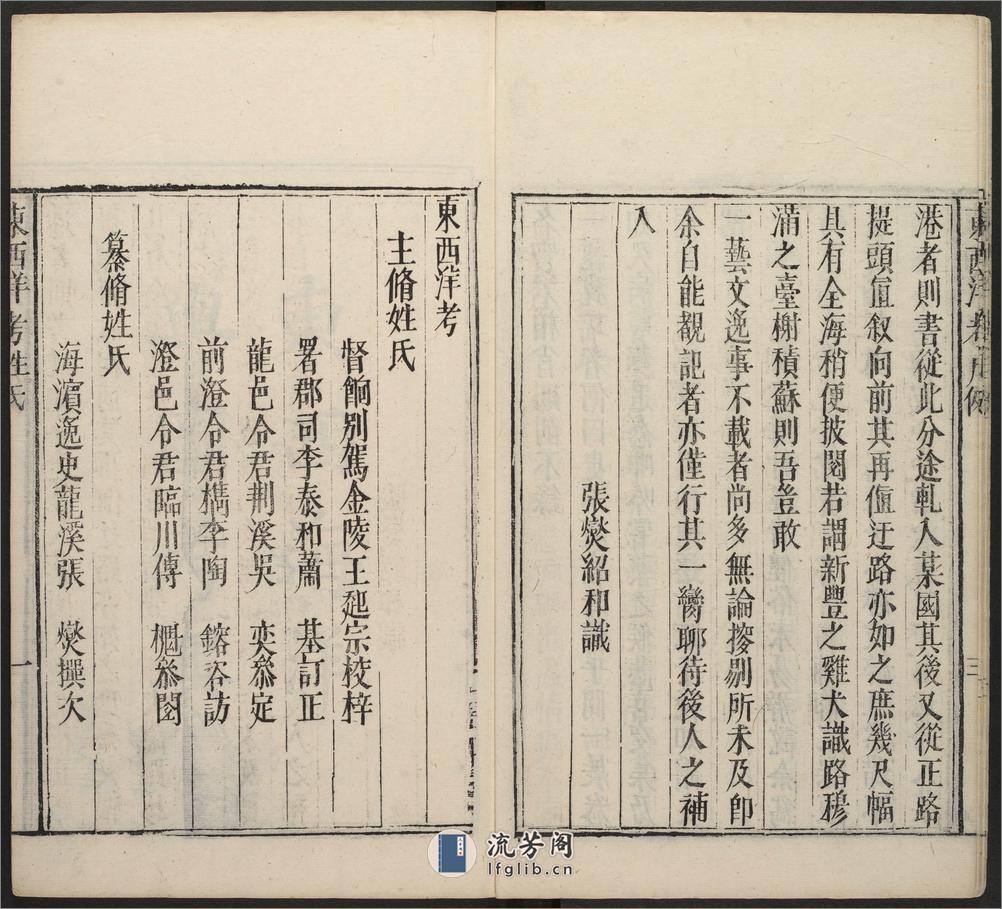 東西洋考凡例
港者則書從此分途軋入某國其後又從正路
提頭值叙向前其再値迂路亦如之庶幾尺幅
具有全海稍便披閱若謂新豐之雞犬識路穆
滿之臺榭積蘇則吾豈敢
一藝文逸事不載者尚多無論搜剔所未及卽
余自能覩記者亦僅行其一臠聊待後人之補
入
張燮紹和識
三
東西洋考
主脩姓氏
督餉別駕金陵王起宗校梓
署郡司李泰和蕭基訂正
龍邑令君荆溪吳奕叅定
前澄令君檇李陶鎔咨訪
澄邑令君臨川傅櫆叅閱
纂脩姓氏
海濱逸史龍溪張燮撰次
東西洋考姓氏
一
流芳阁
lfglib.cn